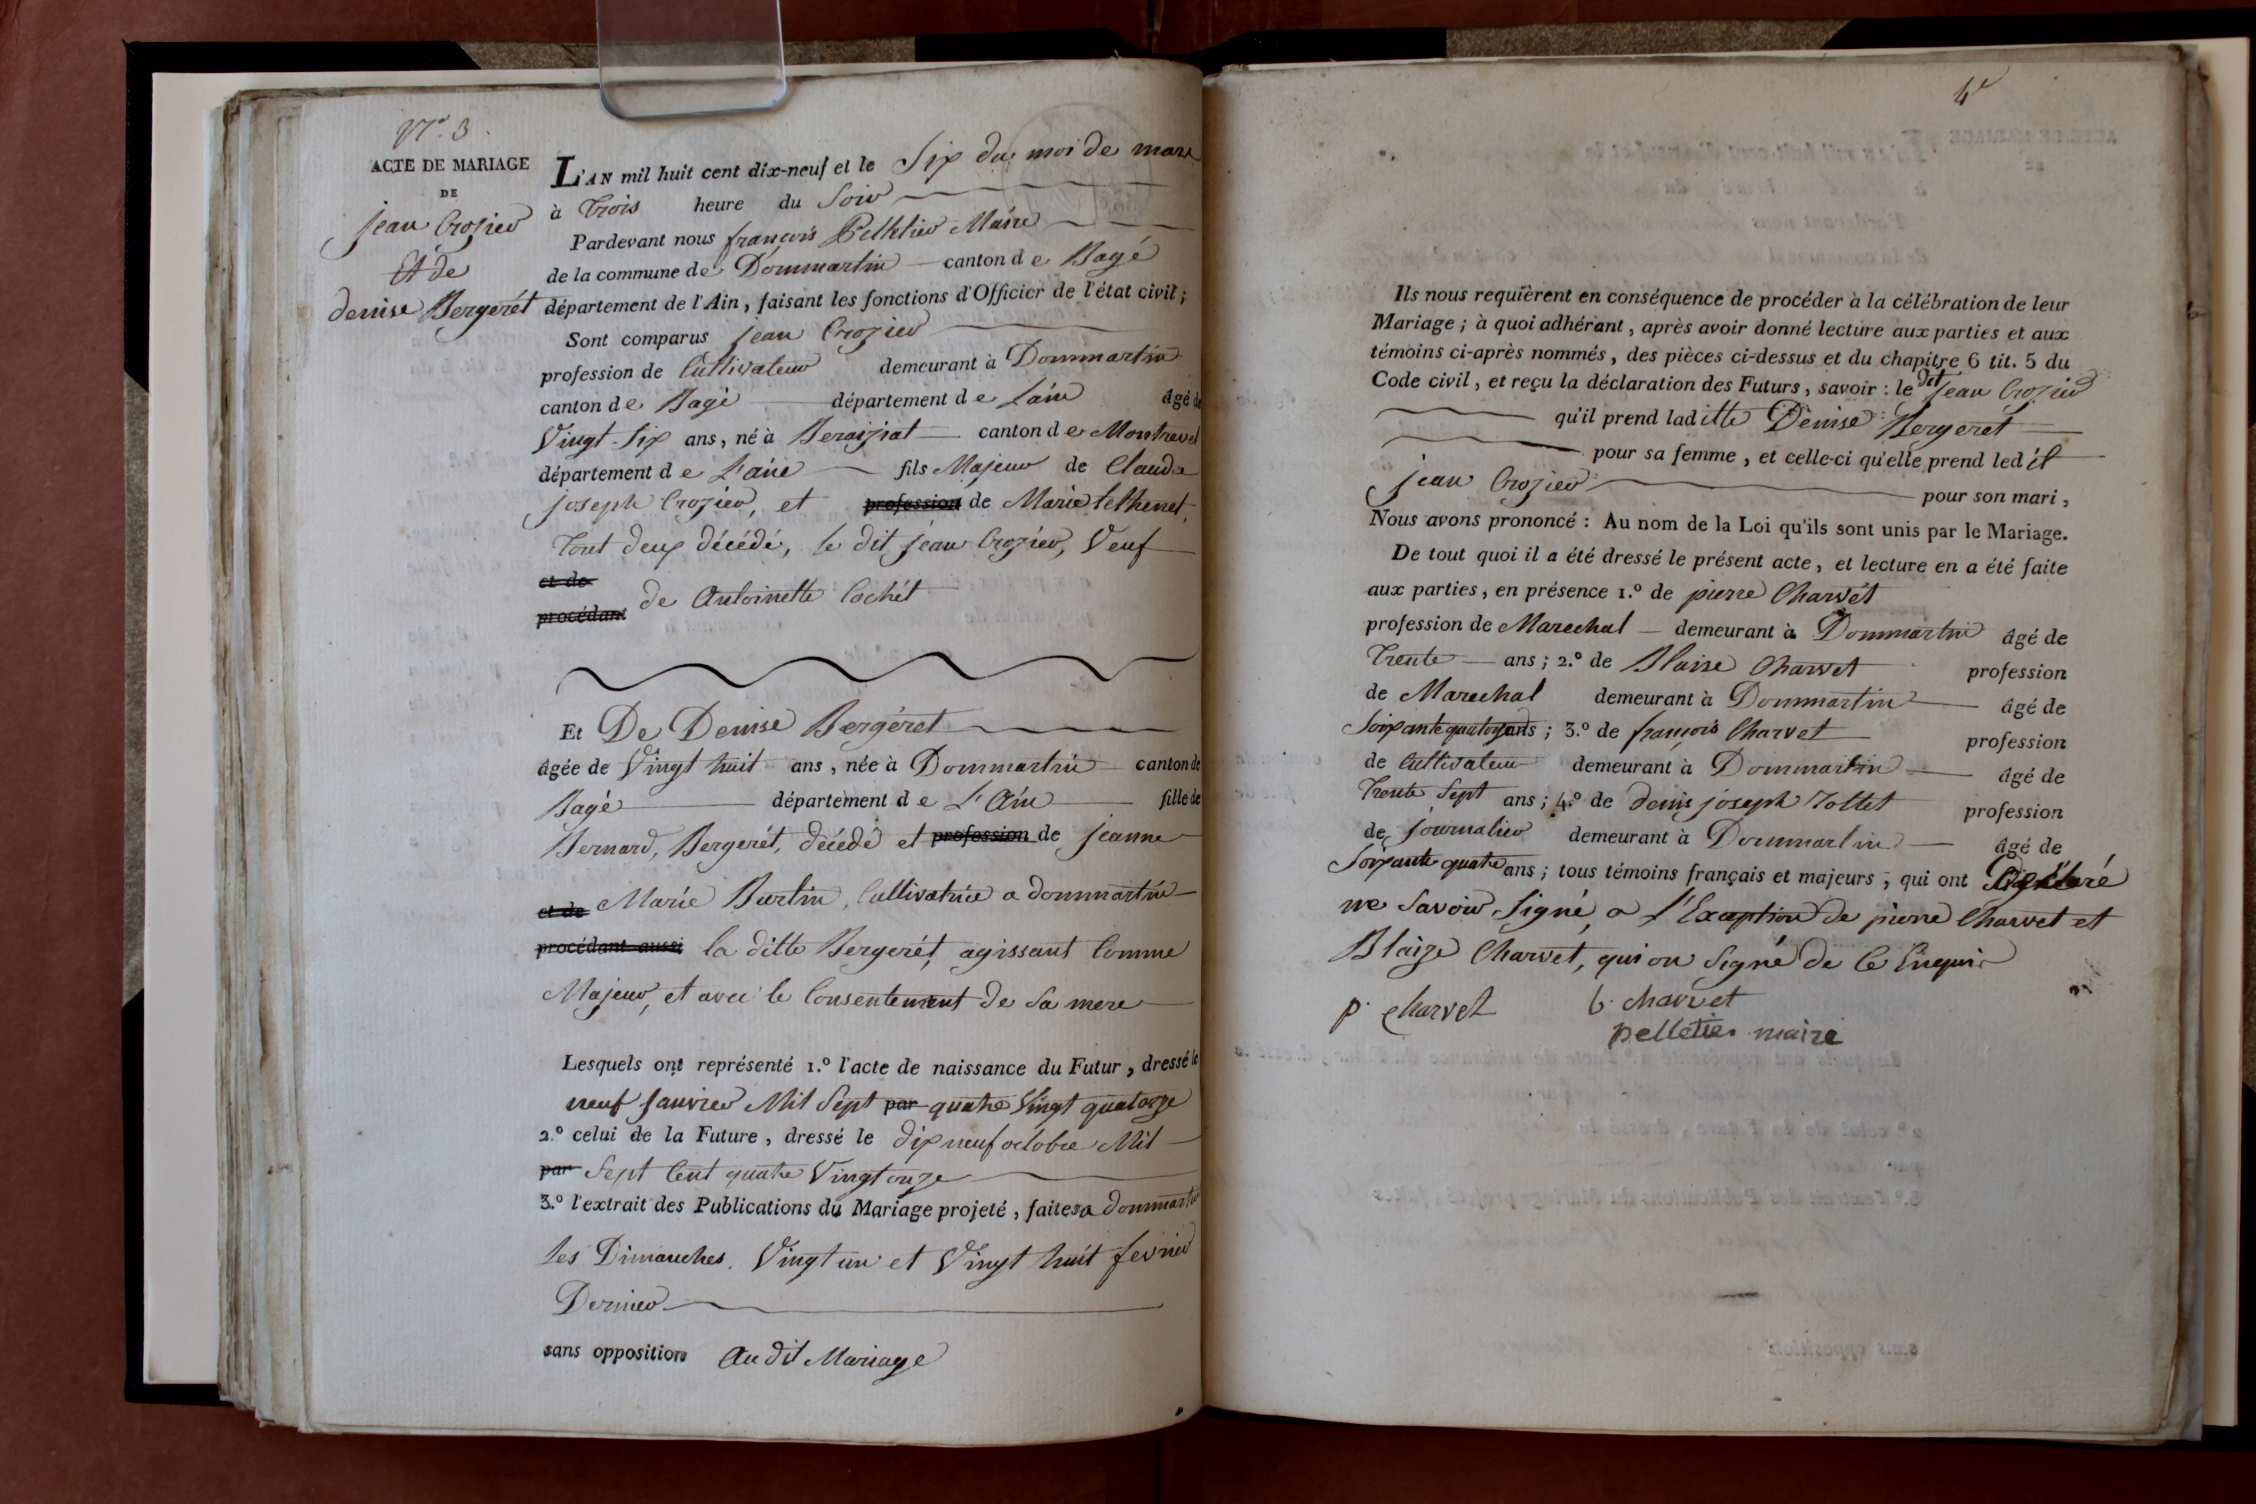 N.o 3.
ACTE DE MARIAGE
DE
jean Crozier
Et de
denise Bergerét
L'AN mil huit cent dix-neuf et le Six du moi de mars
à trois heure du Soir
Pardevant nous françois Pelletier Maire
de la commune de Dommartin canton de Bagé
département de l'Ain, faisant les fonctions d'Officier de l'état civil;
Sont comparus jean Crozier
profession de Cultivateur demeurant à Dommartin
canton de Bagé département de L'ain âgé de
Vingt-Six ans, né à Beraiziat canton de Montrevel
département de L'ain fils Majeur de Claude
joseph Crozier, et profession de Marie
tout deux décédé, le dit jean Crozier, Veuf
et de
procédant de Antoinette Cochét
Et De Denise Bergéret
âgée de Vingt huit ans, née à Dommartin canton de
Bagé département de L'Ain fille de
Bernard, Bergerét, décédé et profession de jeanne
et de Marie Burtin, Cultivatrice a dommartin
procédant aussi la ditte Bergerét, agissant Comme
Majeur, et avec le Consentement de Sa mere
Lesquels ont représenté 1.º l'acte de naissance du Futur, dressé le
neuf Janvier Mil Sept par quatre Vingt quatorze
2.º celui de la Future, dressé le dix neuf octobre Mil
par Sept Cent quatre Vingt onze
3.º l'extrait des Publications du Mariage projeté, faites a dommartin
les Dimanches. Vingt un et Vingt huit fevrier
Dernier
sans opposition Au dit Mariage
4e
Ils nous requièrent en conséquence de procéder à la célébration de leur
Mariage; à quoi adhérant, après avoir donné lecture aux parties et aux
témoins ci-après nommés, des pièces ci-dessus et du chapitre 6 tit. 5 du
Code civil, et reçu la déclaration des Futurs, savoir: le dit jean Crozier
qu'il prend laditte Denise Bergerét
pour sa femme, et celle-ci qu'elle prend ledit
jean Crozier pour son mari,
Nous avons prononcé: Au nom de la Loi qu'ils sont unis par le Mariage.
De tout quoi il a été dressé le présent acte, et lecture en a été faite
aux parties, en présence 1.º de pierre Charvét
profession de Marechal demeurant à Dommartin âgé de
Trente ans; 2.º de Blaise Charvet profession
de Marechal demeurant à Dommartin âgé de
Soixante quatorze ans; 3.º de françois Charvet profession
de Cultivateur demeurant à Dommartin âgé de
Trente Sept ans; 4.º de denis joseph Tollet profession
de journalier demeurant à Dommartin âgé de
Soixante quatre ans; tous témoins français et majeurs, qui ont Déclaré
ne Savoir Signé, a l'Exception de pierre Charvet et
Blaize Charvet, qui on Signé de Ce Enquis
p. charvet b. charvet
pelletier maire